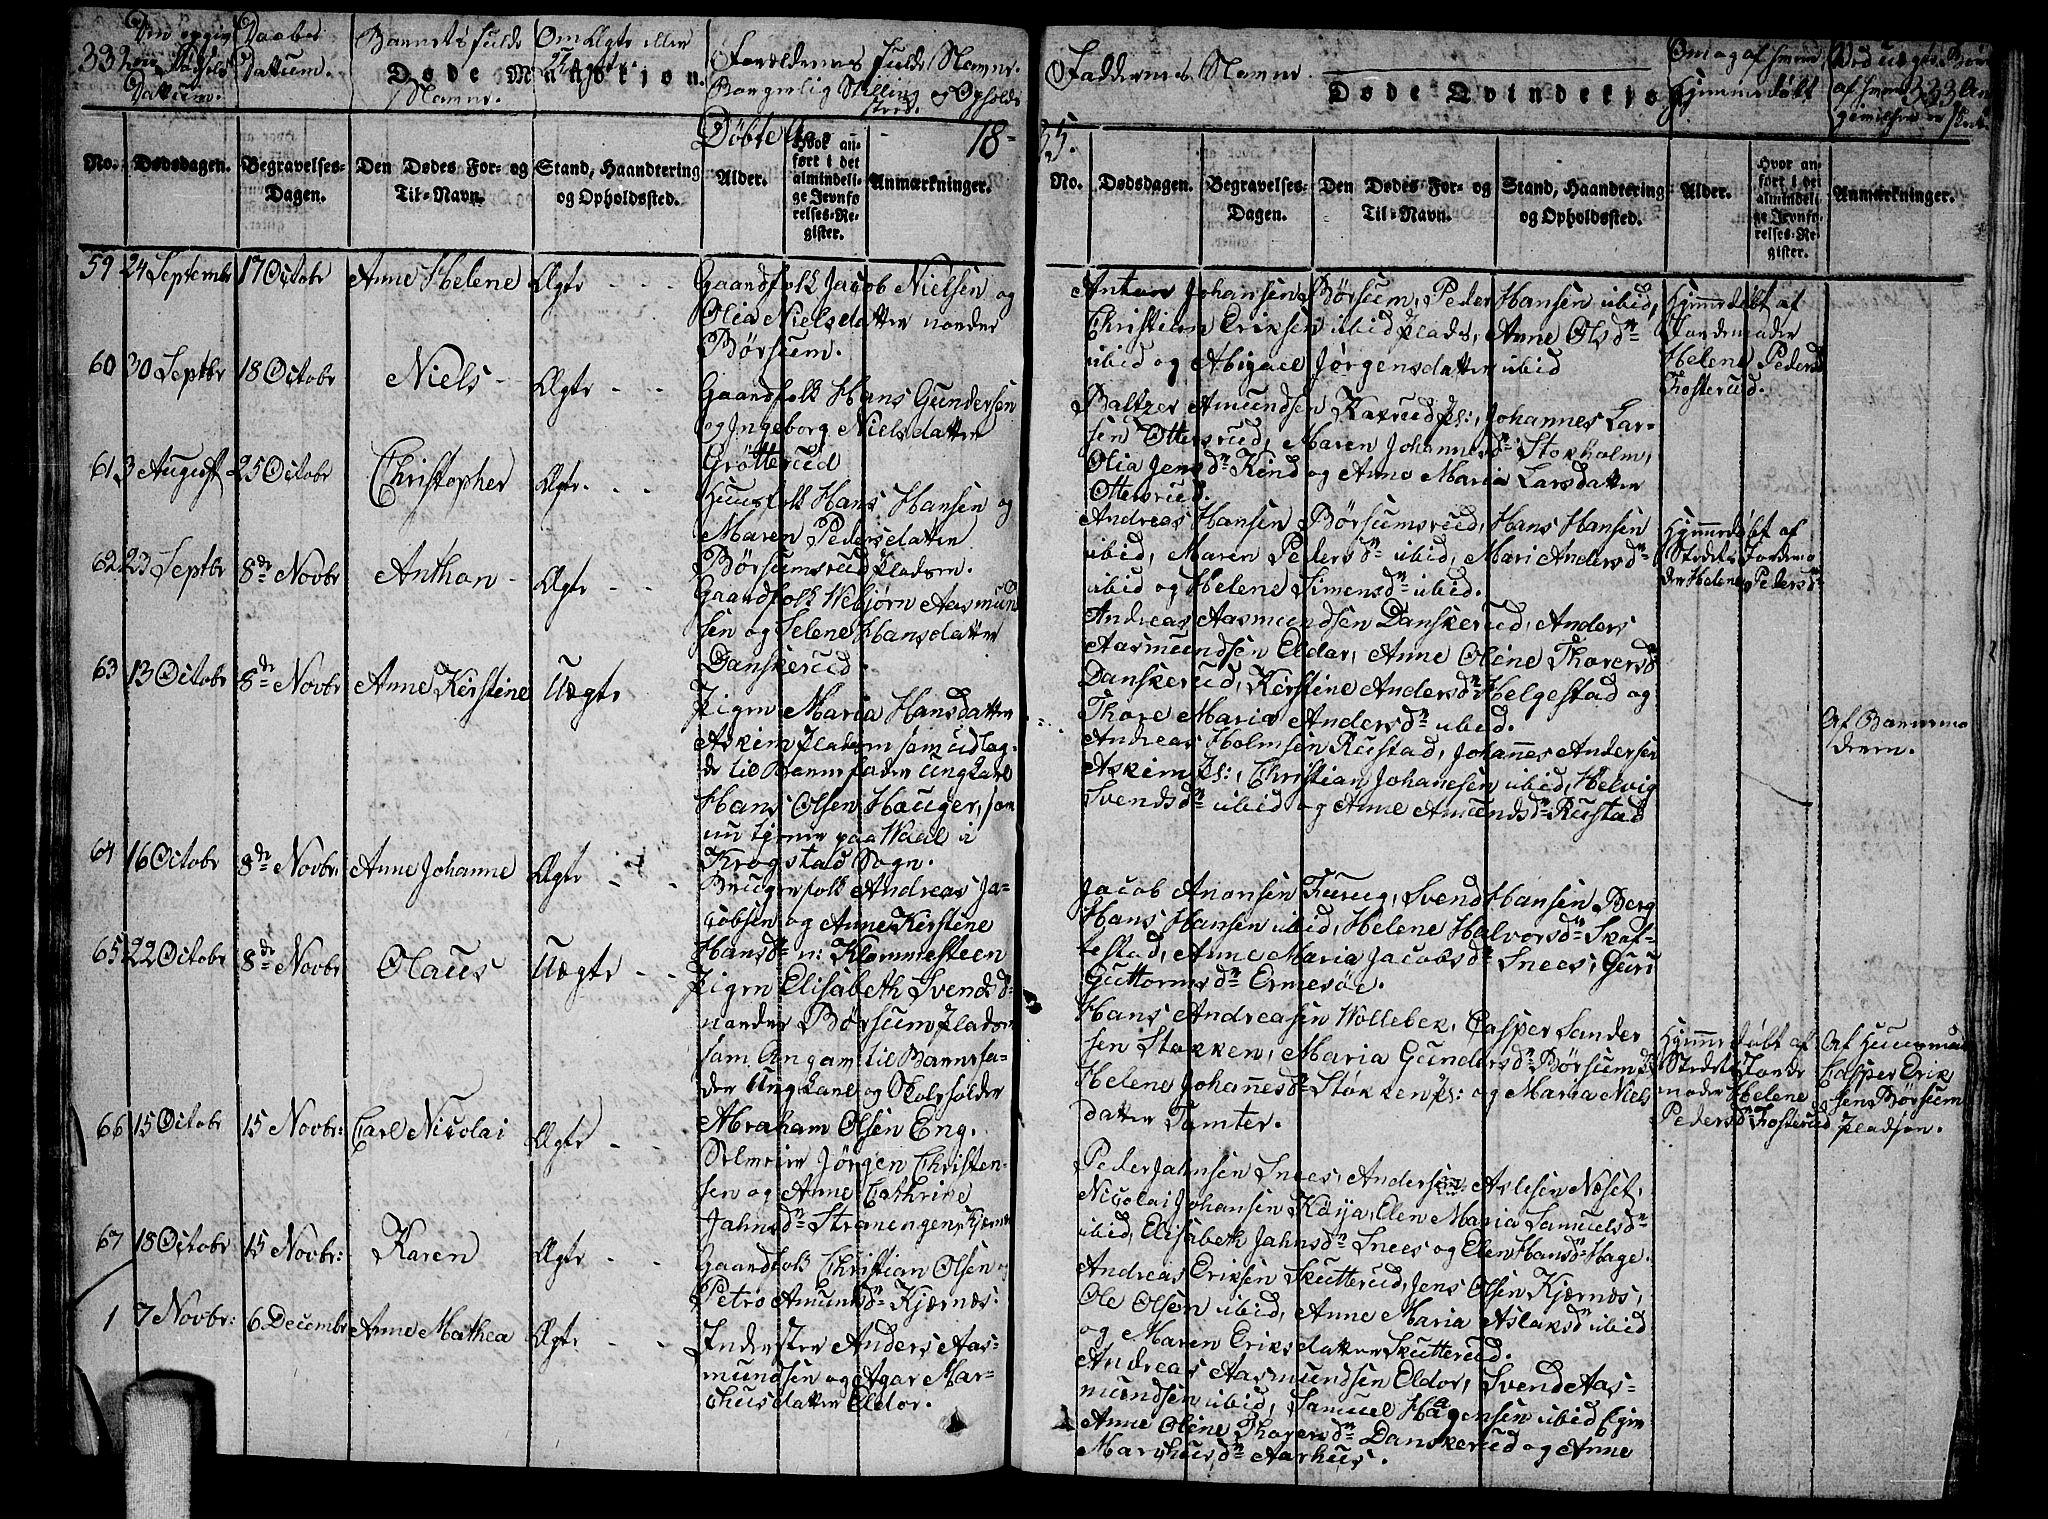 332
Døde Mandkjøn.
Daabs
Datum.
Barnets fulde
Navne.
Om Ægte eller
Uægte.
Forældrenes fulde Navne.
Borgerlig Stilling og Opholds
sted.
Døbte Aar 18
No. Dødsdagen. Begravelses-Dagen. Den Dødes For- og Til-Navn. Stand, Haandtering og Opholdssted. Alder. Hvor anført i det almindelige Jevnførelses-Register. Anmærkninger.
59 24 Septembr 17 Octobr Anne Helene Ægte
Gaardfolk Jacob Nielsen og
Olia Nielsdatter nordre
Børsum.
60 30 Septbr 18 Octobr Niels Ægte
Gaardfolk Hans Gundersen
og Ingeborg Nielsdatter
Grøtterud
61 3 August 25 Octobr Christopher Ægte
Huusfolk Hans Hansen og
Maren Pedersdatter
Børsumsrud Pladsen.
62 23 Septbr 8de Novbr Anthon Ægte
Gaardfolk Webjørn Aasmund
sen og Helene Hansdatter
Danskerud.
63 13 Octobr 8de Novbr Anne Kirstine Uægte
Pigen Maria Hansdatter
Askim Pladsen som udlag-
de til Barnefader Ungkarl
Hans Olsen Hauger, som
nu tjener paa Waal i
Krogstad Sogn.
64 16 Octobr 8de Novbr: Anne Johanne Ægte
Brugerfolk Andreas Ja-
cobsen og Anne Kirstine
Hansdr n: Klommesteen
65 22 Octobr 8de Novbr Olaus Uægte
Pigen Elisabeth Svendsdr
nordre Børsum Pladsen
som Angav til Barnefa-
der Ungkarl og Skoleholder
Abraham Olsen Eng.
66 15 Octobr 15 Novbr: Carl Nicolai Ægte
Selveier Jørgen Christen-
sen og Anne Cathrine
Jahnsdr Stranengen, Kjærnes
67 18 Octobr 15 Novbr: Karen Ægte
Gaardfolk Christian Olsen og
Petro Amundsdr Kjærnæs.
1 7 Novbr: 6 Decembr Anne Mathea Ægte
Inderster Anders Aas-
mundsen og Agar Mar-
chusdatter Eldor.
Faddernes Navne
Døde Qvindekjøn
Om og af hvem
Hjemmedøbt
333
35.
No. Dødsdagen. Begravelses-Dagen. Den Dødes For- og Til-Navn. Stand, Haandtering og Opholdssted. Alder. Hvor anført i det almindelige Jevnførelses-Register. Anmærkninger.
Anton Johansen Børsum, Peder Hansen ubid,
Christian Eriksen ubid Plads, Anne Olsdr
ubid og Abigael Jørgensdatter ubid
Hjemmedøbt af
Jordemoder
Helene Pedersdr
Fosterud.
Baltzer Amundsen Kaxrud Pl:, Johannes Lar-
sen Ottersrud, Maren Johannesdr: Stokholm,
Olia Jensdr Kind og Anne Maria Larsdatter
Ottersrud.
Andreas Hansen Børsumsrud, Hans Hansen
ubid, Maren Pedersdr ubid, Mari Andersdr
ubid og Helene Simensdr ubid.
Hjemmedøbt af
Stedets Jordemo
der Helene Pedersdr
Andreas Aasmundsen Danskerud, Anders
Aasmundsen Eldor, Anne Oline Thoresdr
Danskerud, Kirstine Andersdr Helgestad og
Thore Maria Andersdr ubid.
Andreas Holmsen Rustad, Johannes Andersen
Askim Pl:, Christian Johanesen ubid, Helvig
Svendsdr ubid og Anne Amundsdr Rustad
Af Barnemo
deren.
Jacob Anonsen Furug, Svend Hansen Berg
Hans Hansen ubid, Helene Halvorsdr Skuf-
festad, Anne Maria Jacobsdr Snees, Guri
Guttormsdr Ermesøe.
Hans Andreasen Wollebek, Casper Sander
sen Stokken, Maria Gundersdr Børsum Pl
Helene Johannesdr Stokken, Pl: og Maria Niels
datter Tomter.
Hjemmedøbt af
Stedets Jorde
moder Helene
Pedersdr Fosterud
Af Huusmand
Casper Erik
sen Børsum
Pladsen.
Peder Jahnsen Snees, Anders Aslesen Næset,
Nicolai Johansen Køija, Elen Maria Samuelsdr
ubid, Elisabeth Jahnsdr Snees og Elen Hansdr Hage.
Andreas Eriksen Skutterud, Jens Olsen Kjærnæs,
Ole Olsen ubid, Anne Maria Aslaksdr ubid
og Maren Eriksdatter Skutterud.
Andreas Aasmundsen Eldor, Svend Aas-
mundsen ubid, Samuel Hagensen ubid
Anne Oline Thoresdr Danskerud og Anne
Marchusdr Aarhus.